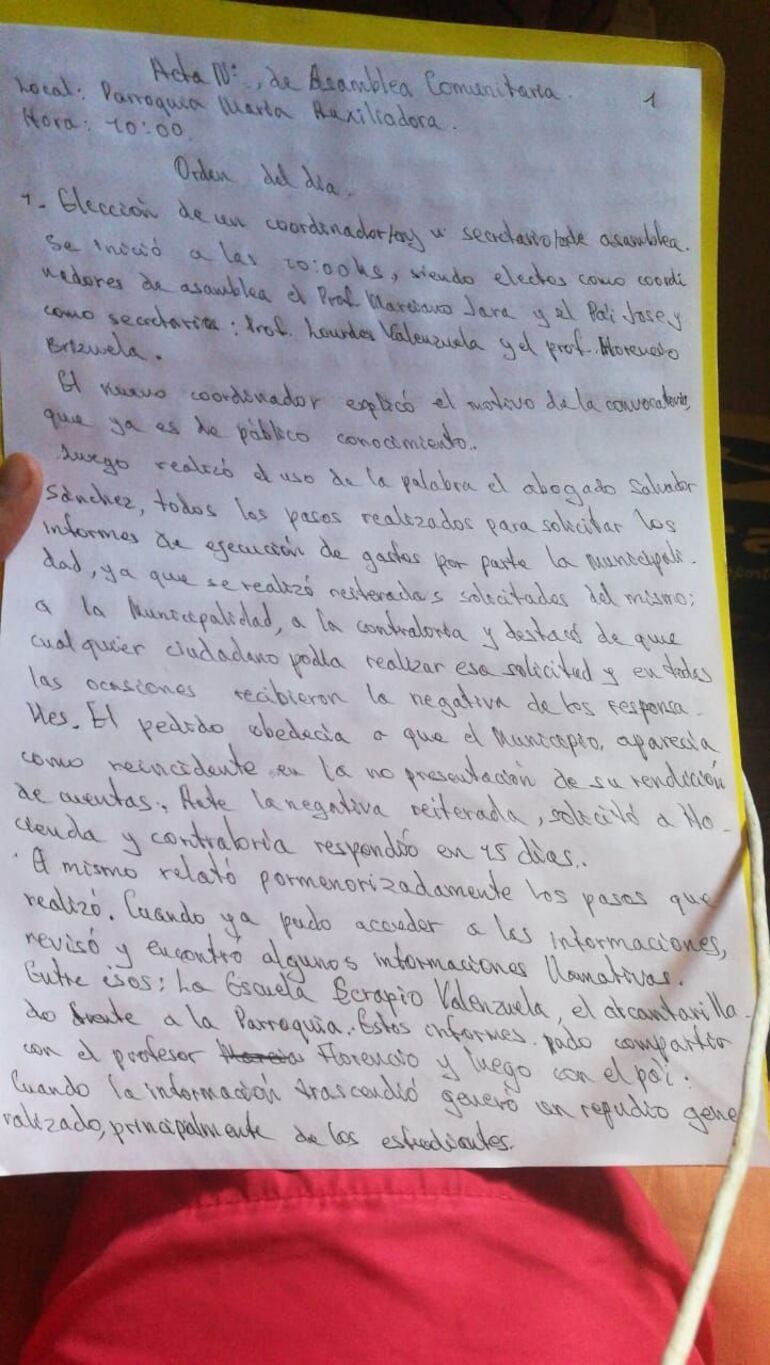 Acta Nº: , de Asamblea Comunitaria. 1
Local: Parroquia María Auxiliadora.
Hora: 10:00
Orden del día.
1- Elección de un coordinador/a y secretario/a de asamblea.
Se inició a las 10:00hs, siendo electos como coordi
nadores de asamblea el Prof. Marciano Jara y el Pa'i Jose y
como secretaria: Prof. Lourdes Valenzuela y el prof. Florencio
Brizuela.
El nuevo coordinador explicó el motivo de la convocatoria,
que ya es de público conocimiento.
Luego realizó el uso de la palabra el abogado Salvador
Sánchez, todos los pasos realizados para solicitar los
informes de ejecución de gastos por parte la Municipali-
dad, ya que se realizó reiteradas solicitades del mismo;
a la Municipalidad, a la contraloría y destacó de que
cualquier ciudadano podía realizar esa solicitud y en todas
las ocasiones recibieron la negativa de los responsa-
bles. El pedido obedecía a que el Municipio, aparecía
como reincidente en la no presentación de su rendición
de cuentas. Ante la negativa reiterada, solicitó a Ha-
cienda y contraloría respondió en 15 días.
El mismo relató pormenorizadamente los pasos que
realizó. Cuando ya pudo acceder a las informaciones,
revisó y encontró algunos informaciones llamativas.
Entre esos: La Escuela Serapio Valenzuela, el alcantarilla-
do frente a la Parroquia. Estos informes pudo compartir
con el profesor Florencio y luego con el pa'i.
Cuando la información trascendió generó un repudio gene
ralizado, principalmente de los estudiantes.